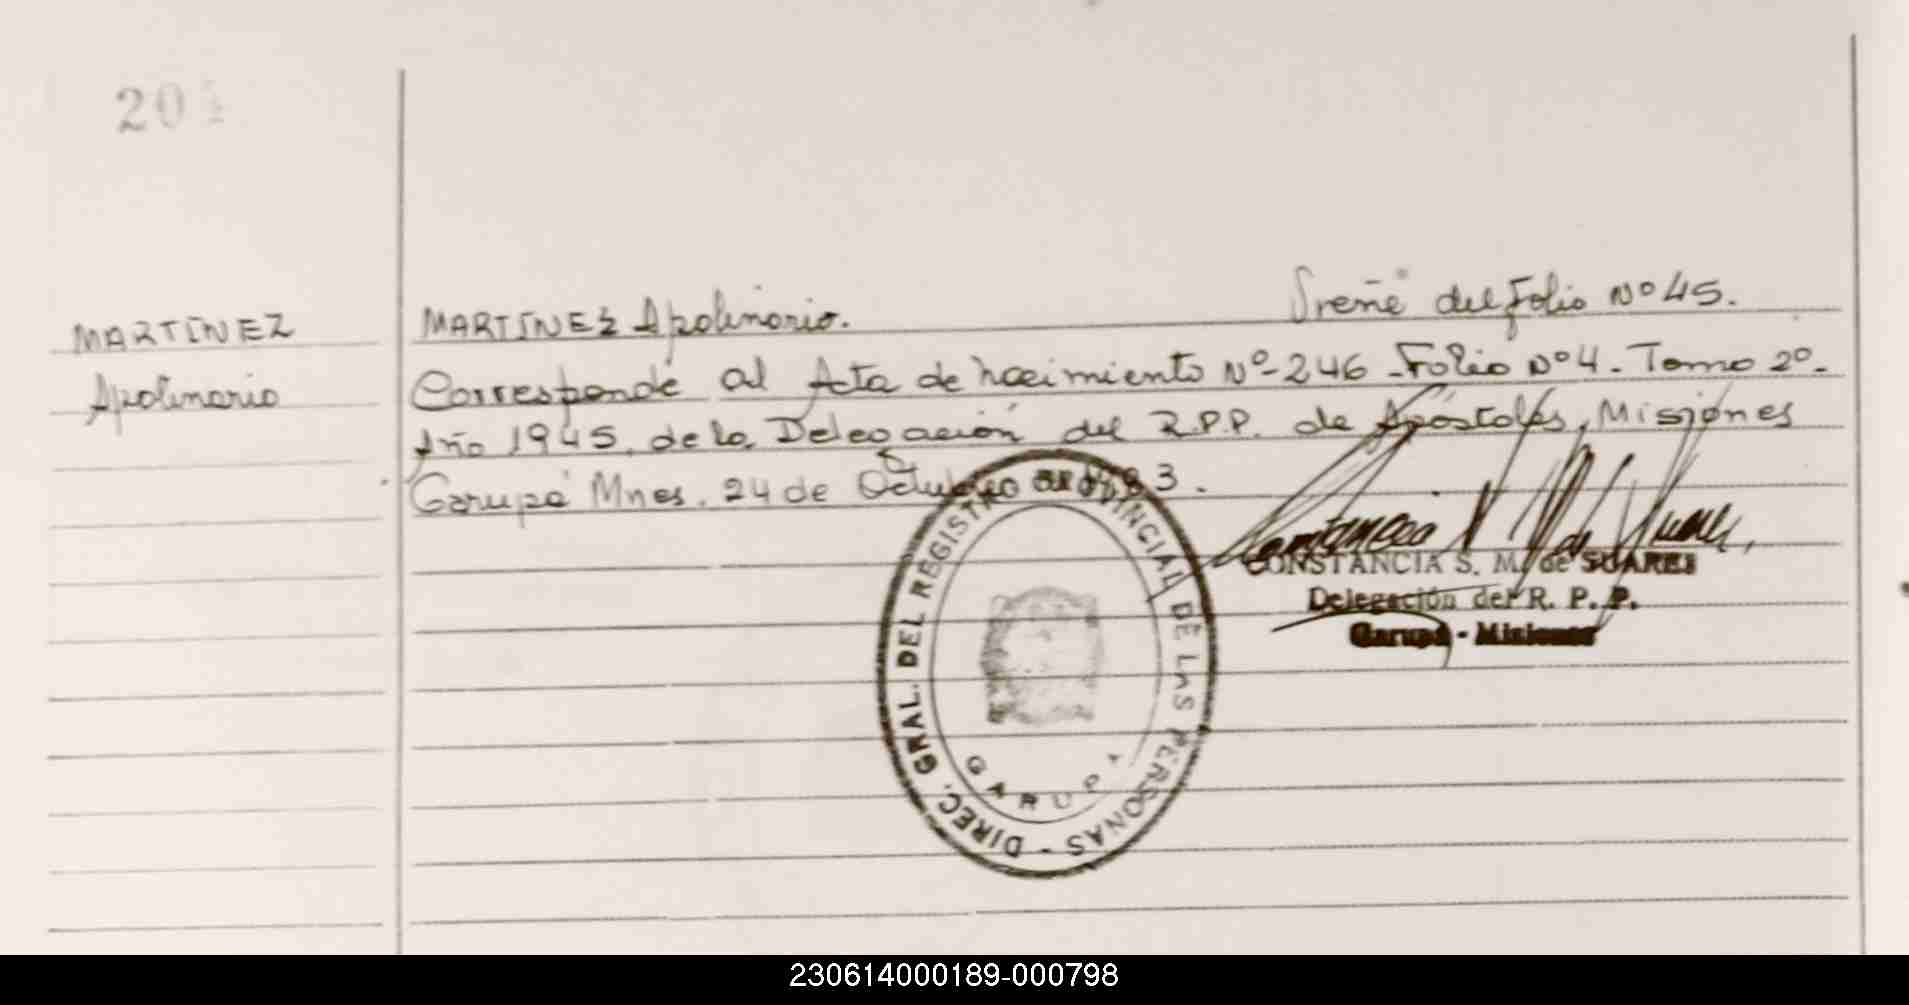 20
MARTINEZ
Apolinario
MARTINEZ Apolinario. del Folio Nº 45.
Corresponde al Acta de nacimiento Nº-246 - Folio Nº 4. Tomo 2º-
Año 1945, de la Delegación del R.P.P. de Apóstoles, Misiones
Garupá Mnes. 24 de Octubre 3.
CONSTANCIA S. M. de SUAREZ
Delegación del R. P. P.
Garupá - Misiones
DIREC. GRAL. DEL REGISTRO PROVINCIAL DE LAS PERSONAS -
GARUPA
230614000189-000798